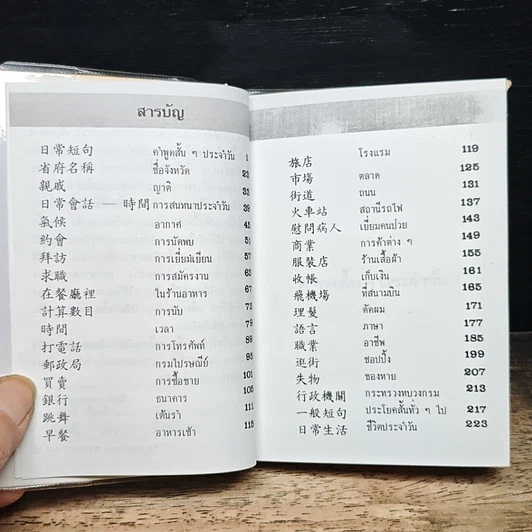 สารบัญ
日常短句 คำพูดสั้น ๆ ประจำวัน 1
省府名稱 ชื่อจังหวัด 23
親戚 ญาติ 33
日常會話 — 時間 การสนทนาประจำวัน 39
氣候 อากาศ 45
約會 การนัดพบ 51
拜訪 การเยี่ยมเยียน 57
求職 การสมัครงาน 63
在餐廳裡 ในร้านอาหาร 67
計算數目 การนับ 73
時間 เวลา 79
打電話 การโทรศัพท์ 85
郵政局 กรมไปรษณีย์ 93
買賣 การซื้อขาย 101
銀行 ธนาคาร 105
跳舞 เต้นรำ 111
早餐 อาหารเช้า 115
旅店 โรงแรม 119
市場 ตลาด 125
街道 ถนน 131
火車站 สถานีรถไฟ 137
慰問病人 เยี่ยมคนป่วย 143
商業 การค้าต่าง ๆ 149
服裝店 ร้านเสื้อผ้า 155
收帳 เก็บเงิน 161
飛機場 ที่สนามบิน 165
理髮 ตัดผม 171
語言 ภาษา 177
職業 อาชีพ 185
逛街 ชอปปิ้ง 199
失物 ของหาย 207
行政機關 กระทรวงทบวงกรม 213
一般短句 ประโยคสั้นทั่ว ๆ ไป 217
日常生活 ชีวิตประจำวัน 223